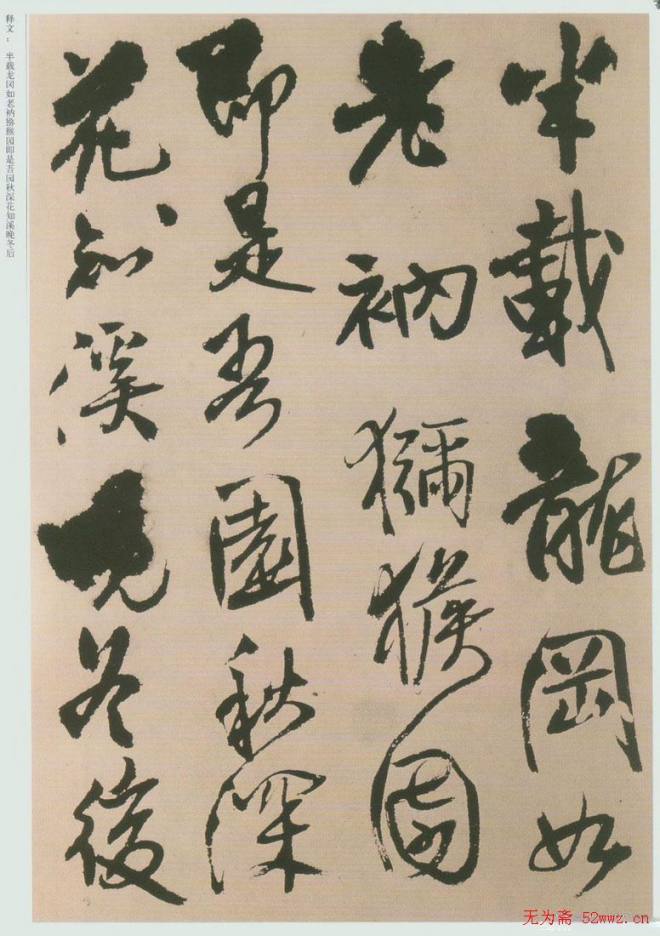 释文： 半载龙冈如老衲猕猴园即是吾园秋深花知溪晚冬后
半載龍岡如
老衲獼猴园
即是吾園秋深
花知溪晚冬後
无为斋 52wwz.cn